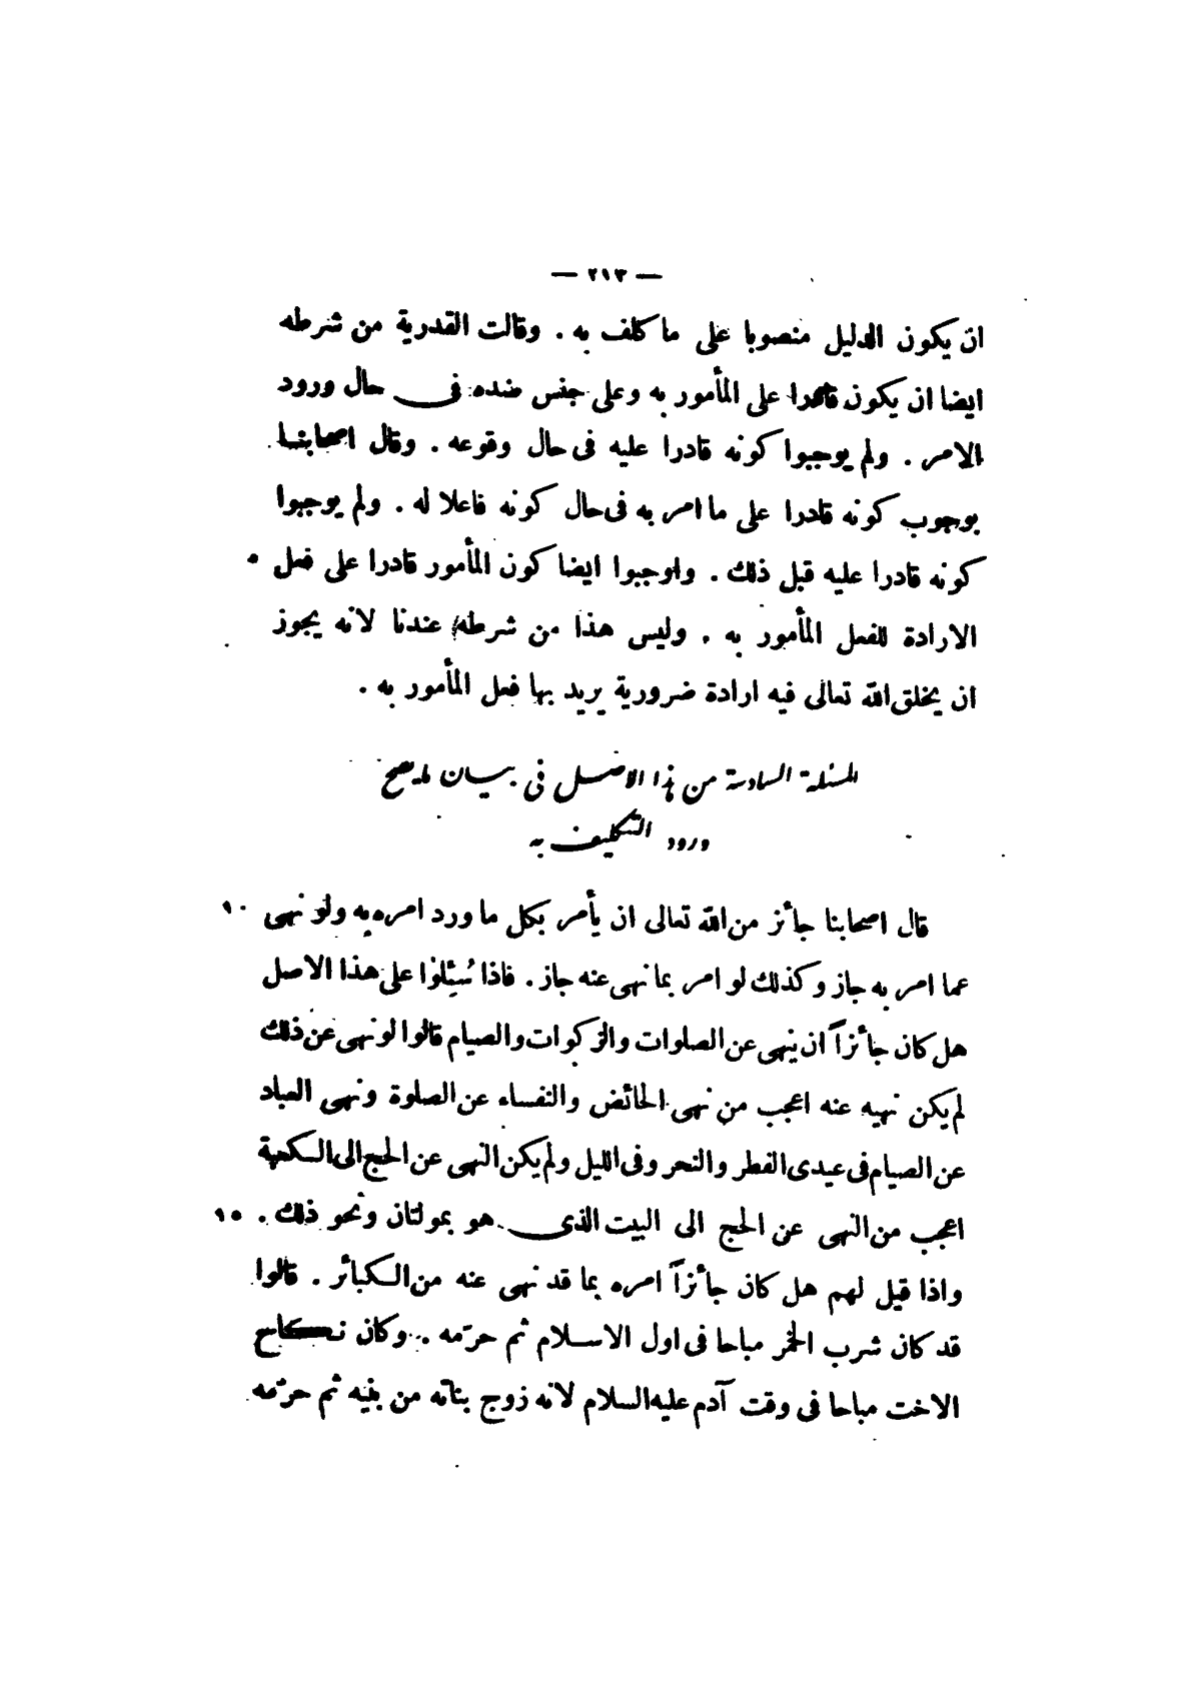 — ٢١٣ —
ان يكون الدليل منصوبا على ما كلف به . وقالت القدرية من شرطه
ايضا ان يكون قادرا على المأمور به وعلى جنس ضده فى حال ورود
الامر . ولم يوجبوا كونه قادرا عليه فى حال وقوعه . وقال اصحابنا
بوجوب كونه قادرا على ما امر به فى حال كونه فاعلا له . ولم يوجبوا
كونه قادرا عليه قبل ذلك . واوجبوا ايضا كون المأمور قادرا على فعل ٥
الارادة للفعل المأمور به . وليس هذا من شرطه عندنا لانه يجوز
ان يخلق الله تعالى فيه ارادة ضرورية يريد بها فعل المأمور به .
المسئلة السادسة من هذا الاصل فى بيان ما يصح
ورود التكليف به
قال اصحابنا جائز من الله تعالى ان يأمر بكل ما ورد امره به ولو نهى ١٠
عما امر به جاز وكذلك لو امر بما نهى عنه جاز . فاذا سُئِلوا على هذا الاصل
هل كان جائزاً ان ينهى عن الصلوات والزكوات والصيام قالوا لو نهى عن ذلك
لم يكن نهيه عنه اعجب من نهى الحائض والنفساء عن الصلوة ونهى العباد
عن الصيام فى عيدى الفطر والنحر وفى الليل ولم يكن النهى عن الحج الى الكعبة
اعجب من النهى عن الحج الى البيت الذى هو بمولتان ونحو ذلك . ١٥
واذا قيل لهم هل كان جائزاً امره بما قد نهى عنه من الكبائر . قالوا
قد كان شرب الخمر مباحا فى اول الاسلام ثم حرّمه . وكان نكاح
الاخت مباحا فى وقت آدم عليه السلام لانه زوج بناته من بنيه ثم حرّمه